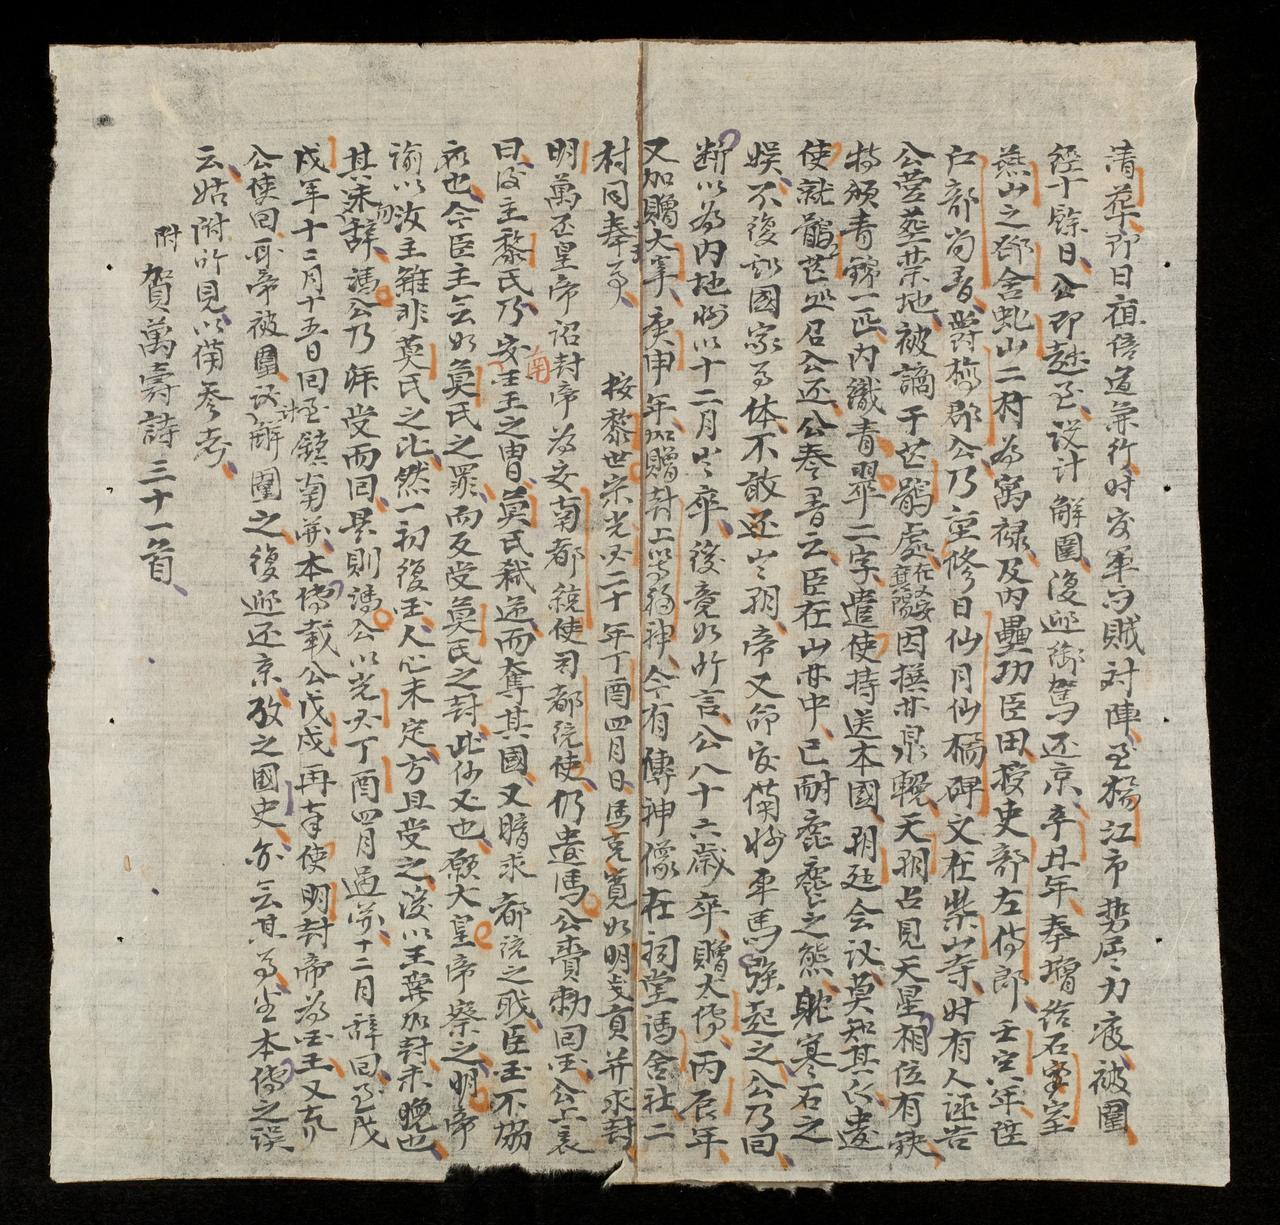 清華即日宿倍道兼行时安軍与賊对陣至楊江市勢屈力疲被圍
經十餘日公即趂至设计解圍復迎御駕还京辛丑年奉增给石室室
燕山之邵舍虬山二村為寓禄及內壘功臣田授吏部左侍郎壬寅年陞
户部尚書爵梅郡公乃重修日仙月仙橋碑文在柴山寺时有人誣告
公营葬禁地被謫于芒鶻處在又安宜陽因撰林泉輓天朝占見天星相位有缺
特頒青錦一匹內織青翠二字遣使持送本國朝廷会议莫知其心遂
使就鶻芒处召公还公奏書云臣在山林中已耐鹿麋之熊躭寒石之
娯不復知國家事体不敢还朝帝又命安備妙車馬強起之公乃回
断以為內地妙以十二月卒後竟如所言公八十六歲卒贈太傅丙辰年
又加贈大王庚申年加贈封上等福神今有傳神像在祠堂馮舍社二
村同奉事 按黎世宗光兴二十年丁酉四月日馮克寬如明歲貢并求封
明萬历皇帝诏封帝為安南都統使司都統使仍遣馬公賫勅回国公上表
曰臣主黎氏乃安南王之胄莫氏弒逆而奪其國又暗求都統之职臣国不協
服也今臣主無如莫氏之罪而反受莫氏之封此何义也願大皇帝察之明帝
諭以汝主雖非莫氏之比然一初復国人心未定方且受之後以王爵加封未晚也
其勿來辞馮公乃拜受而回是則馮公以光兴丁酉四月過关十二月辞回至戊
戌年十二月十五日回至鎮南关本傳載公戊戌再奉使明封帝為国王又有
公使回时帝被圍议計解圍之復迎还京攷之國史亦無其事此本傳之误
云姑附所見以備参考
附賀萬壽詩三十一首